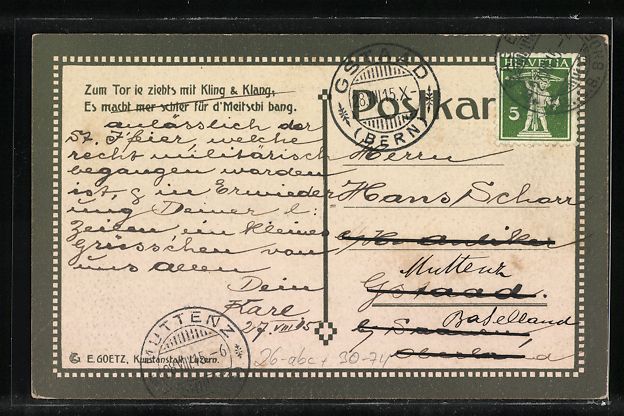 Zum Tor ie ziehts mit Kling & Klang,
Es macht mer schier für d'Meitschi bang.
Postkar
GSTAAD
(BERN)
HELVETIA
5
anlässlich der
St. J'feier, welche
recht militärisch
begangen worden
ist, & in Erwieder
ung Deiner l:
Zeilen ein kleines
Grüsschen von
uns allen
Dein
Karl
27. VIII 15
Herrn
Hans Scharr
Muttenz
Gstaad.
Baselland
MUTTENZ
E. GOETZ, Kunstanstalt, Luzern.
26-abc + 30-74